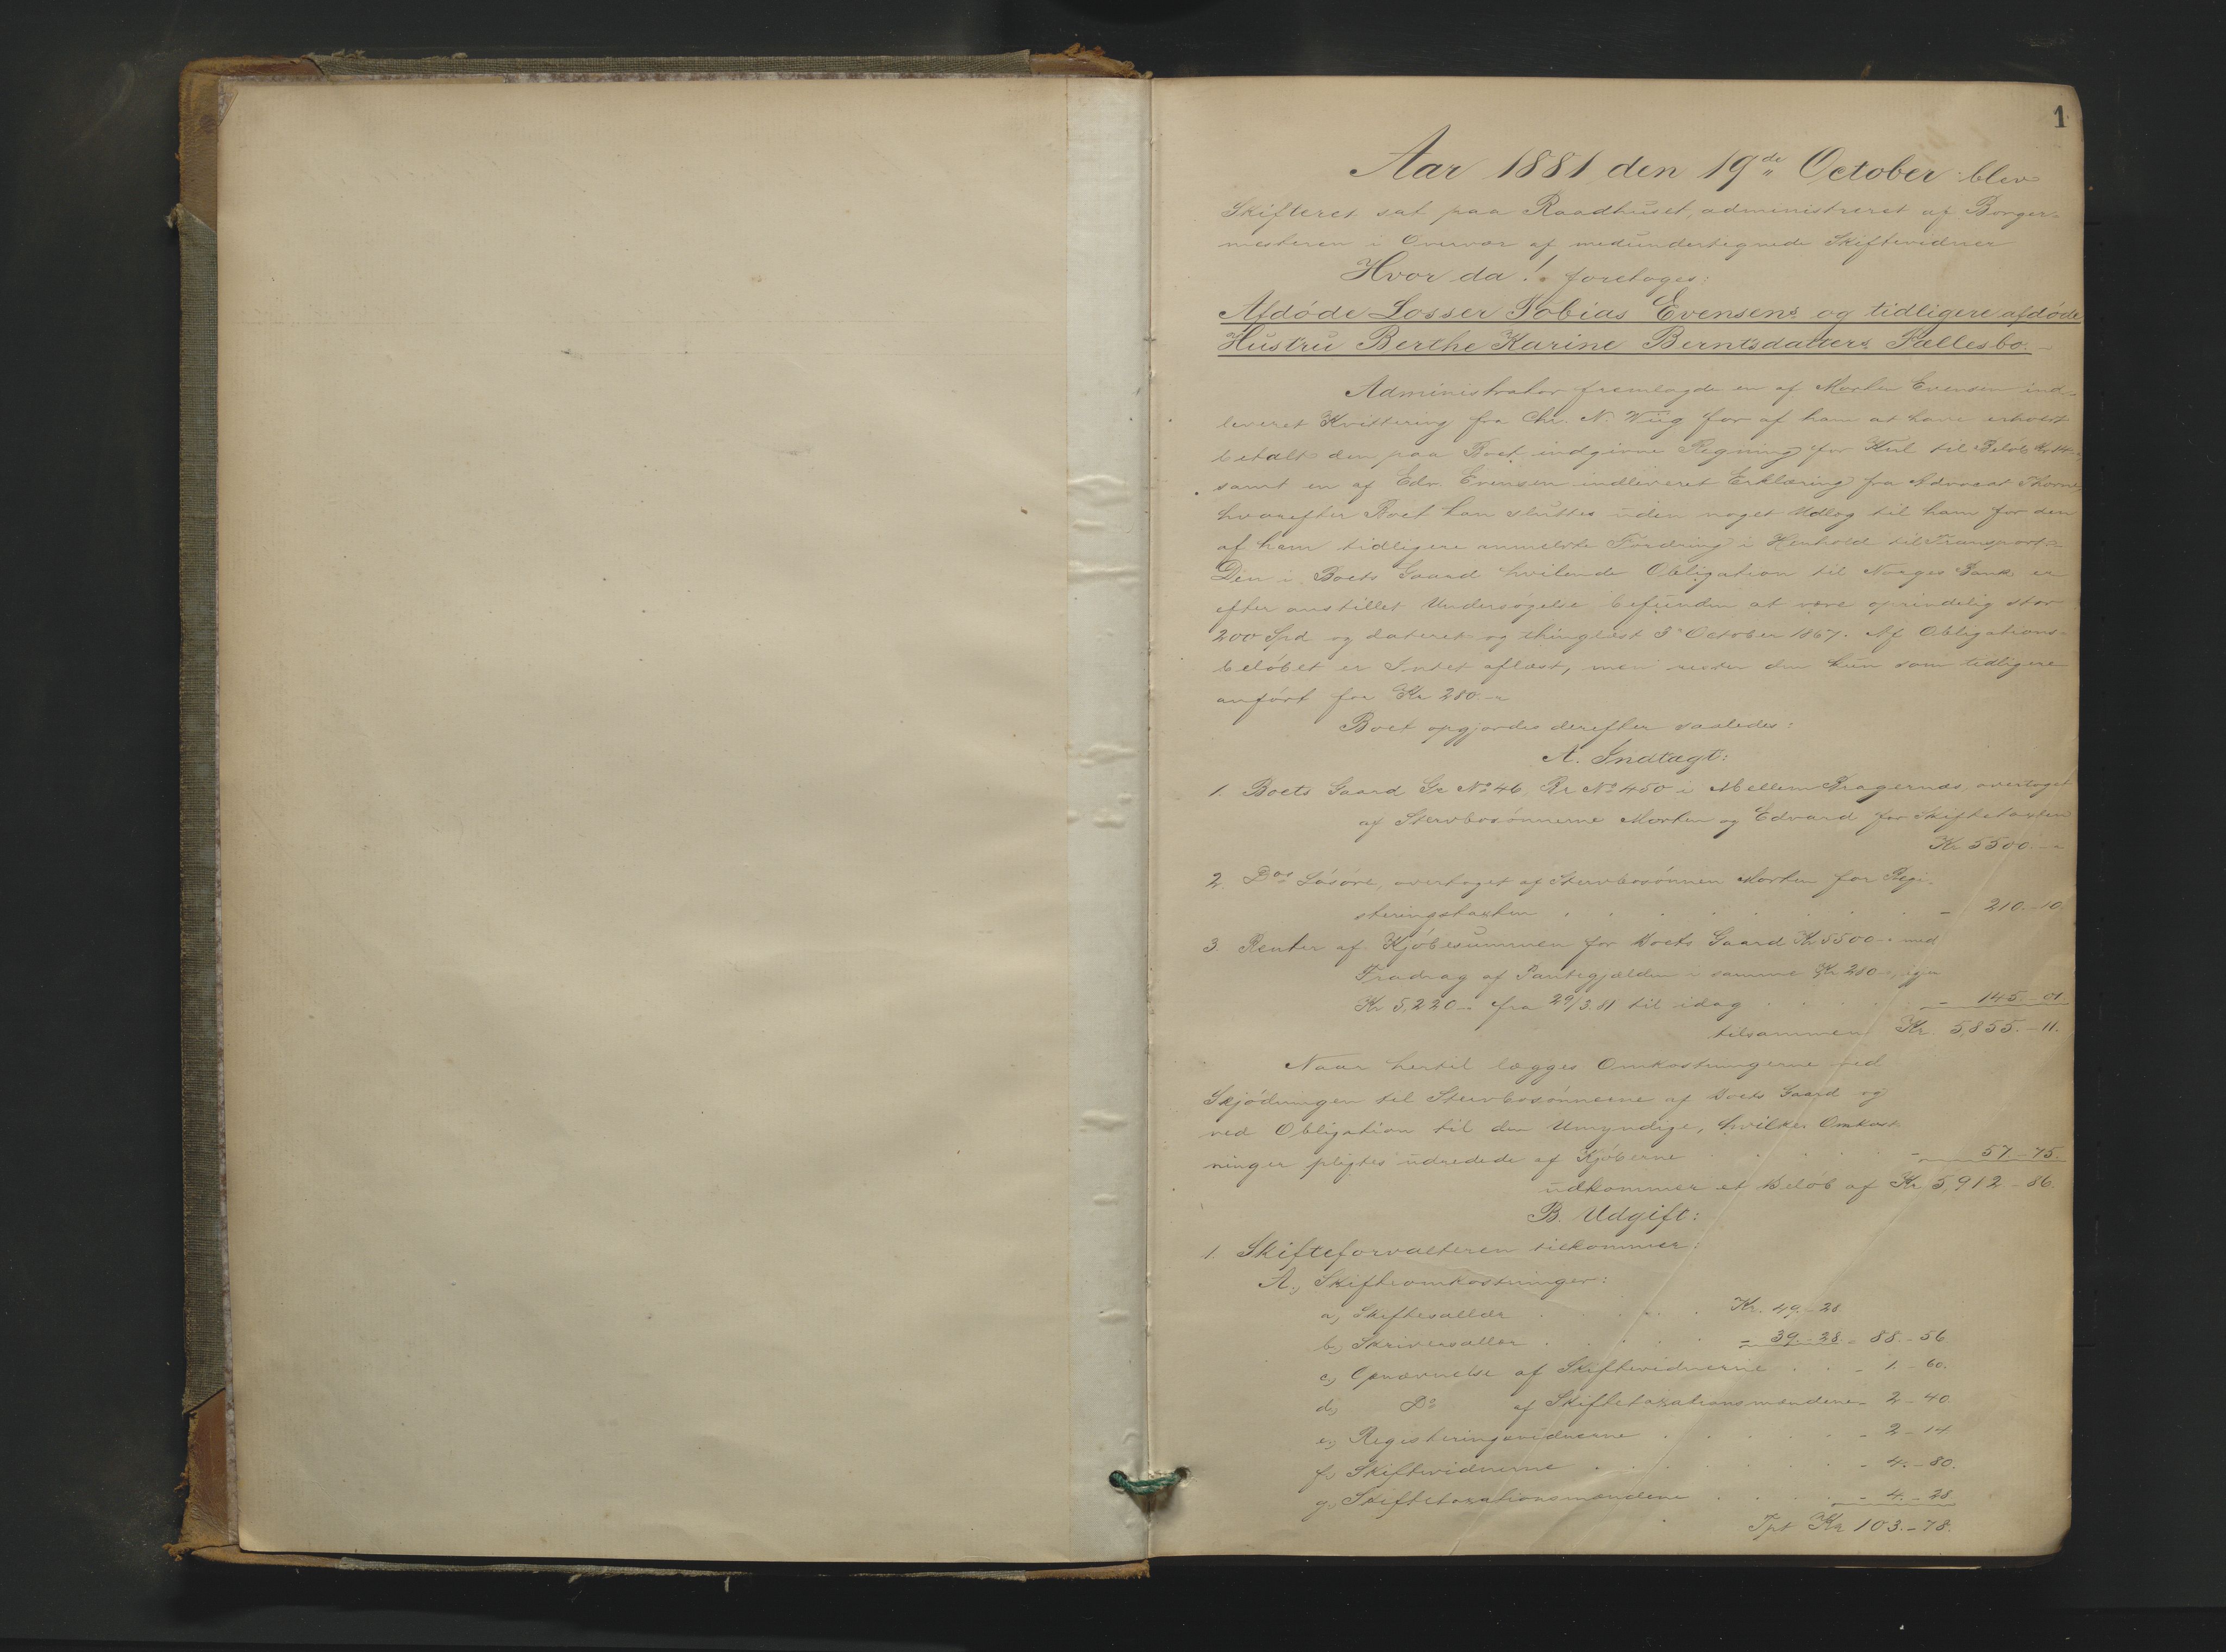 1
Aar 1881 den 19de October blev
Skifteret sat paa Raadhuset, administreret af Borger-
mesteren i Overvær af medundertegnede Skiftevidner
Hvor da! foretoges:
Afdöde Losser Tobias Evensens og tidligere afdöde
Hustru Berthe Karine Berntsdatters Fællesbo.-
Administrator fremlagde en af Morten Evensen ind-
leveret Kvittering fra Chr. N. Wiig for af ham at have erholdt
betalt den paa Boet indgivne Regning for Kul til Beløb Kr 14.-,
samt en af Edv. Evensen indleveret Erklæring fra Advocat Thorne,
hvorefter Boet kan sluttes uden noget Udlæg til ham for den
af ham tidligere anmeldte Fordring i Henhold til Transport.-
Den i Boets Gaard hvilende Obligation til Norges Bank er
efter anstillet Undersøgelse befunden at være oprindelig stor
200 Spd og dateret og thinglæst 3 October 1867. Af Obligations-
beløbet er Intet aflæst, men rester den kun som tidligere
anført for Kr 280.-
Boet opgjordes derefter saaledes:
A. Indtægt:
1. Boets Gaard Gr No 46, Br No 450 i Mellem Bragernæs, overtaget
af Stervbosönnerne Morten og Edvard for Skiftetaxten
Kr 5500.-
2. Dos Løsøre, overtaget af Stervbosönnen Morten for Regi-
streringstaxten . . . . . . . . - 210.-10.
3 Renter af Kjöbesummen for Boets Gaard Kr 5500.- med
Fradrag af Pantegjælden i samme Kr 280.-, igjen
Kr 5,220.- fra 29/3.81 til idag . . . . - 145.-01.
tilsammen Kr. 5,855.-11.
Naar hertil lægges Omkostningerne ved
Skjödningen til Stervbosönnerne af Boets Gaard og
ved Obligation til den Umyndige, hvilke Omkost-
ninger pligtes udredede af Kjøberne . . . . . - 57.-75.
udkommer et Beløb af Kr 5,912.-86.
B. Udgift:
1. Skifteforvalteren tilkommer:
A, Skifteomkostninger:
a, Skiftesallær . . . . . Kr. 49.-28
b, Skriversallær . . . . . - 39.-28 - 88.-56
c, Opnævnelse af Skiftevidnerne . . - 1.-60.
d, Do af Skiftetaxationsmændene - 2-40
e, Registreringsvidnerne . . . . . . - 2-14
f, Skiftevidnerne . . . . . . . - 4.-80.
g, Skiftetaxationsmændene . . . . . - 4.-28
Tpt Kr 103.-78.